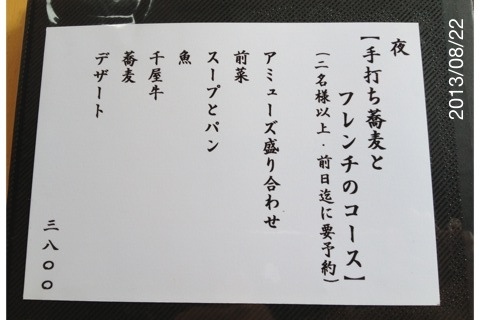 夜
【手打ち蕎麦と
フレンチのコース】
（二名様以上・前日迄に要予約）
アミューズ盛り合わせ
前菜
スープとパン
魚
千屋牛
蕎麦
デザート
三八〇〇
2013/08/22